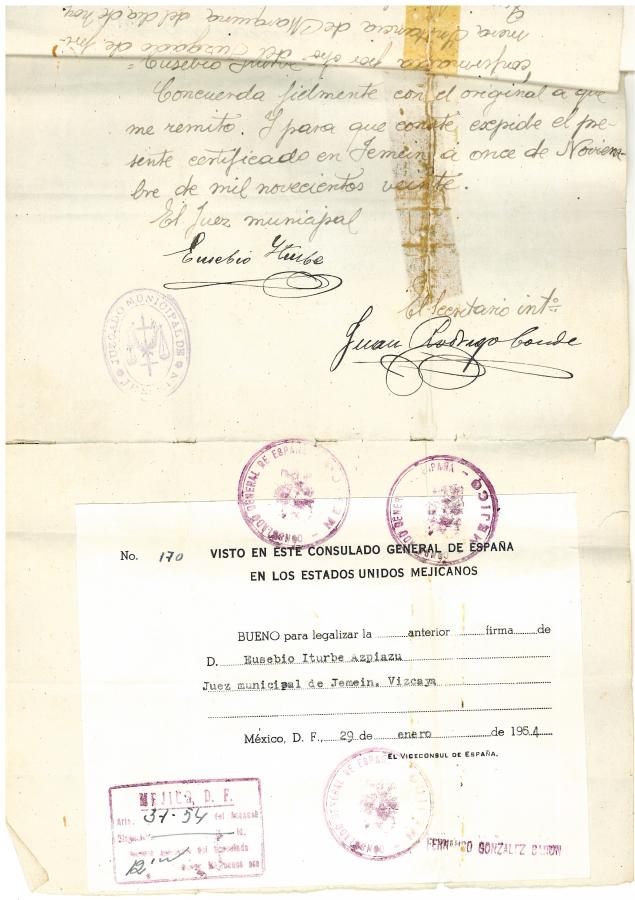 mera Instancia de Marquina del dia de hoy.
confirmada por dho. del Juzgado de pri-
"Eusebio Iturbe
Concuerda fielmente con el original a que
me remito. Y para que conste expide el pre-
sente certificado en Jemein, a once de Noviem-
bre de mil novecientos veinte.
El Juez municipal
Eusebio Iturbe
El Secretario intº:
Juan Rodrigo Conde
JUZGADO MUNICIPAL DE
CONSULADO GENERAL DE ESPAÑA - MEJICO
CONSULADO GENERAL ESPAÑA - MEJICO
No. 170 VISTO EN ESTE CONSULADO GENERAL DE ESPAÑA
EN LOS ESTADOS UNIDOS MEJICANOS
BUENO para legalizar la anterior firma de
D. Eusebio Iturbe Azpiazu
Juez municipal de Jemein, Vizcaya
México, D. F., 29 de enero de 1954
EL VICECONSUL DE ESPAÑA.
CONSULADO GENERAL DE ESPAÑA
MEJICO, D. F.
Arto. 37-54 del Arancel
FERNANDO GONZALEZ